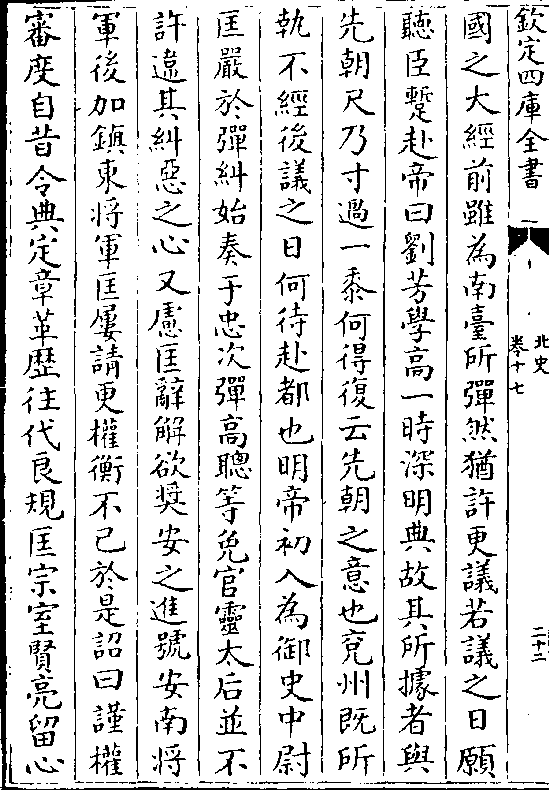 欽定四庫全書
北史
卷十七
二十二
國之大經前雖為南臺所彈然猶許更議若議之日願
聽臣蹔赴帝曰劉芳學高一時深明典故其所據者與
先朝尺乃寸過一黍何得復云先朝之意也兗州既所
執不經後議之日何待赴都也明帝初入為御史中尉
匡嚴於彈糾始奏于忠次彈高聰等免官靈太后並不
許違其糾惡之心又慮匡辭解欲奬安之進號安南將
軍後加鎮東將軍匡屢請更權衡不已於是詔曰謹權
審度自昔令典定章革歴往代良規匡宗室賢亮留心